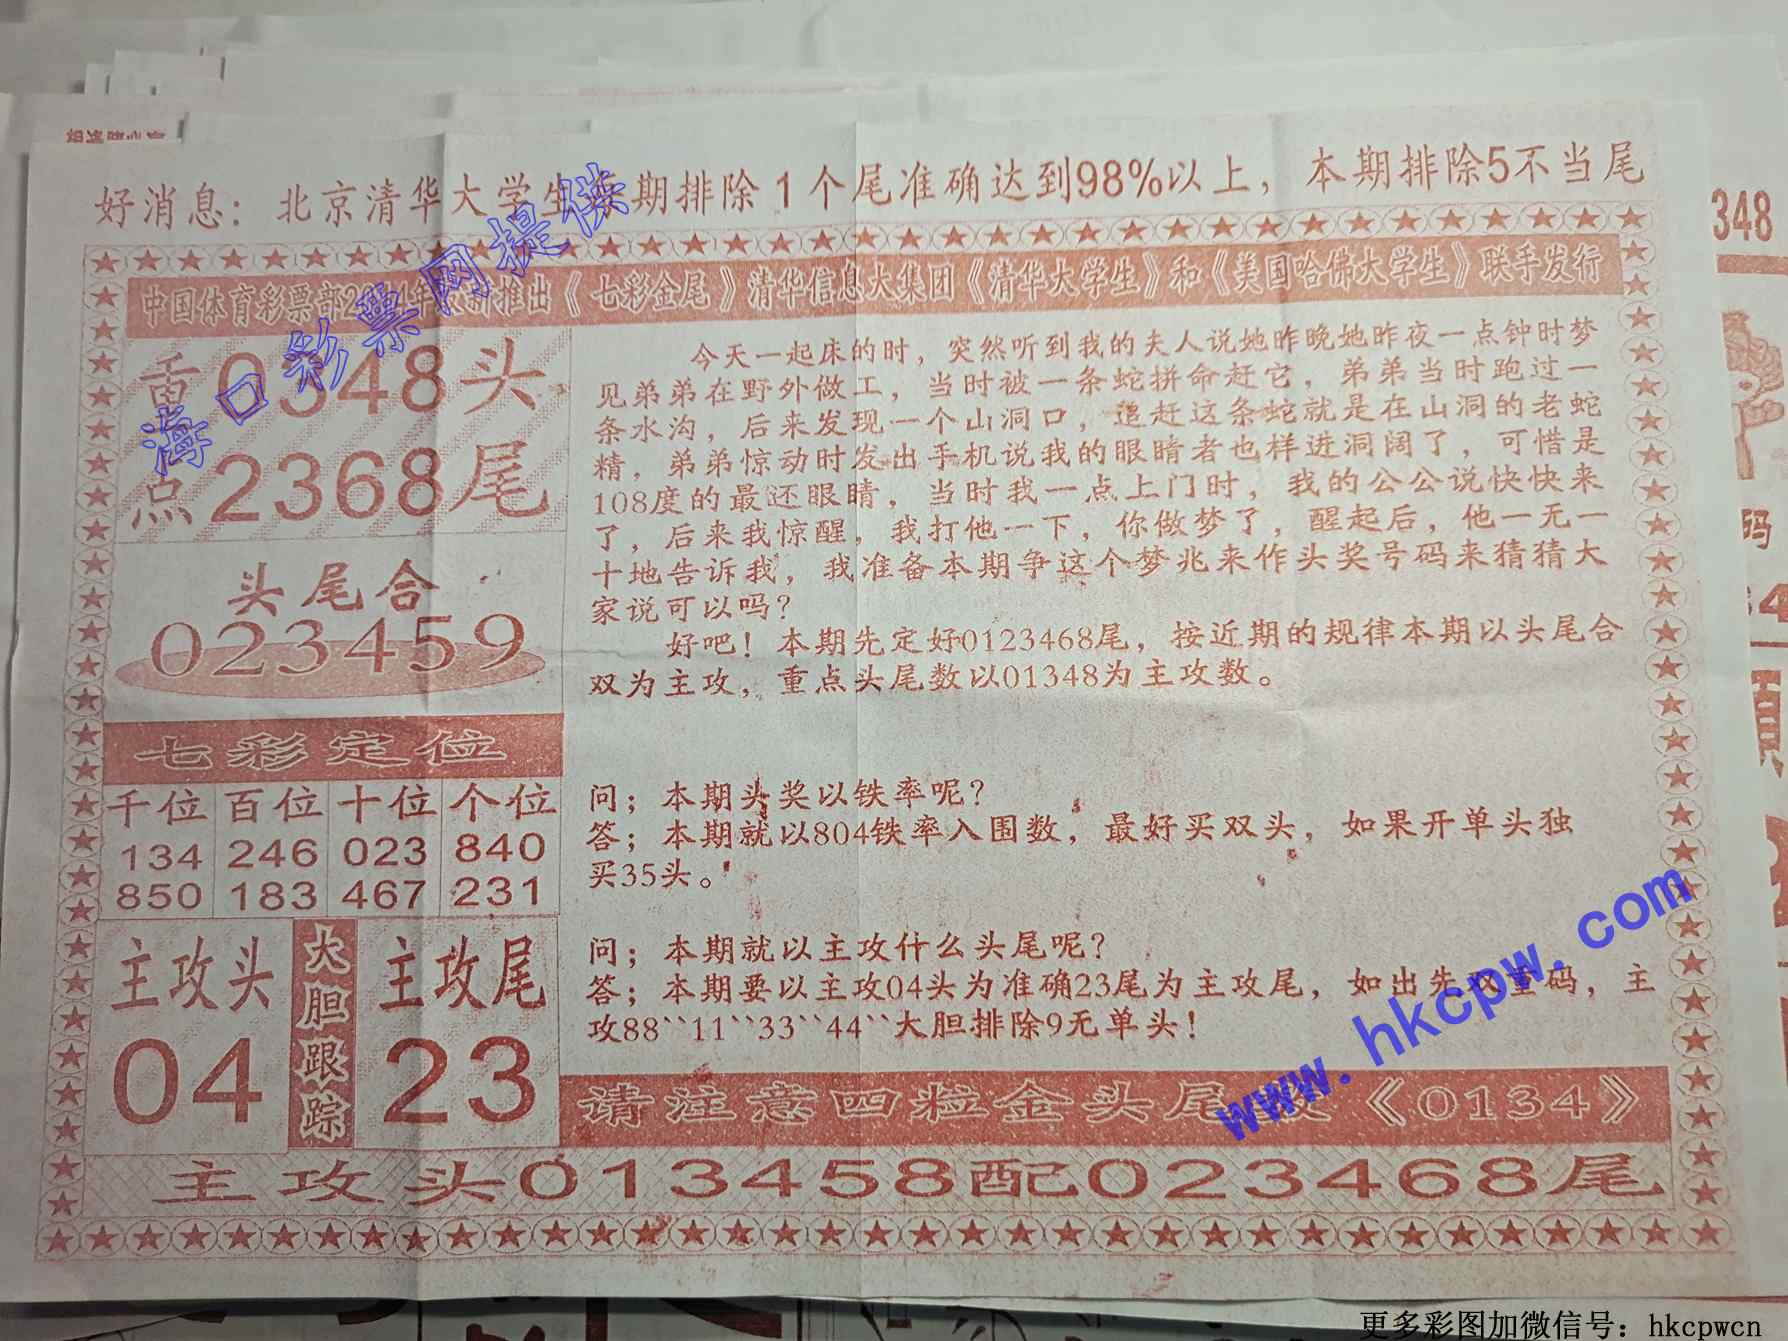 好消息：北京清华大学生本期排除1个尾准确达到98%以上，本期排除5不当尾
中国体育彩票部2 年 推出《七彩金尾》清华信息大集团《清华大学生》和《美国哈佛大学生》联手发行
重 0348头
点 2368尾
头尾合
023459
七彩定位
千位 百位 十位 个位
134 246 023 840
850 183 467 231
主攻头 大胆跟踪 主攻尾
04 23
今天一起床的时，突然听到我的夫人说她昨晚她昨夜一点钟时梦
见弟弟在野外做工，当时被一条蛇拼命赶它，弟弟当时跑过一
条水沟，后来发现一个山洞口，追赶这条蛇就是在山洞的老蛇
精，弟弟惊动时发出手机说我的眼睛者也样进洞阔了，可惜是
108度的最还眼睛，当时我一点上门时，我的公公说快快来
了，后来我惊醒，我打他一下，你做梦了，醒起后，他一无一
十地告诉我，我准备本期争这个梦兆来作头奖号码来猜猜大
家说可以吗？
好吧！本期先定好0123468尾，按近期的规律本期以头尾合
双为主攻，重点头尾数以01348为主攻数。
问；本期头奖以铁率呢？
答；本期就以804铁率入围数，最好买双头，如果开单头独
买35头。
问；本期就以主攻什么头尾呢？
答；本期要以主攻04头为准确23尾为主攻尾，如出先双重码，主
攻88``11``33``44``大胆排除9无单头！
请注意四粒金头尾 《0134》
主攻头013458配023468尾
海口彩票网提供
www.hkcpw.com
348
码
更多彩图加微信号：hkcpwcn